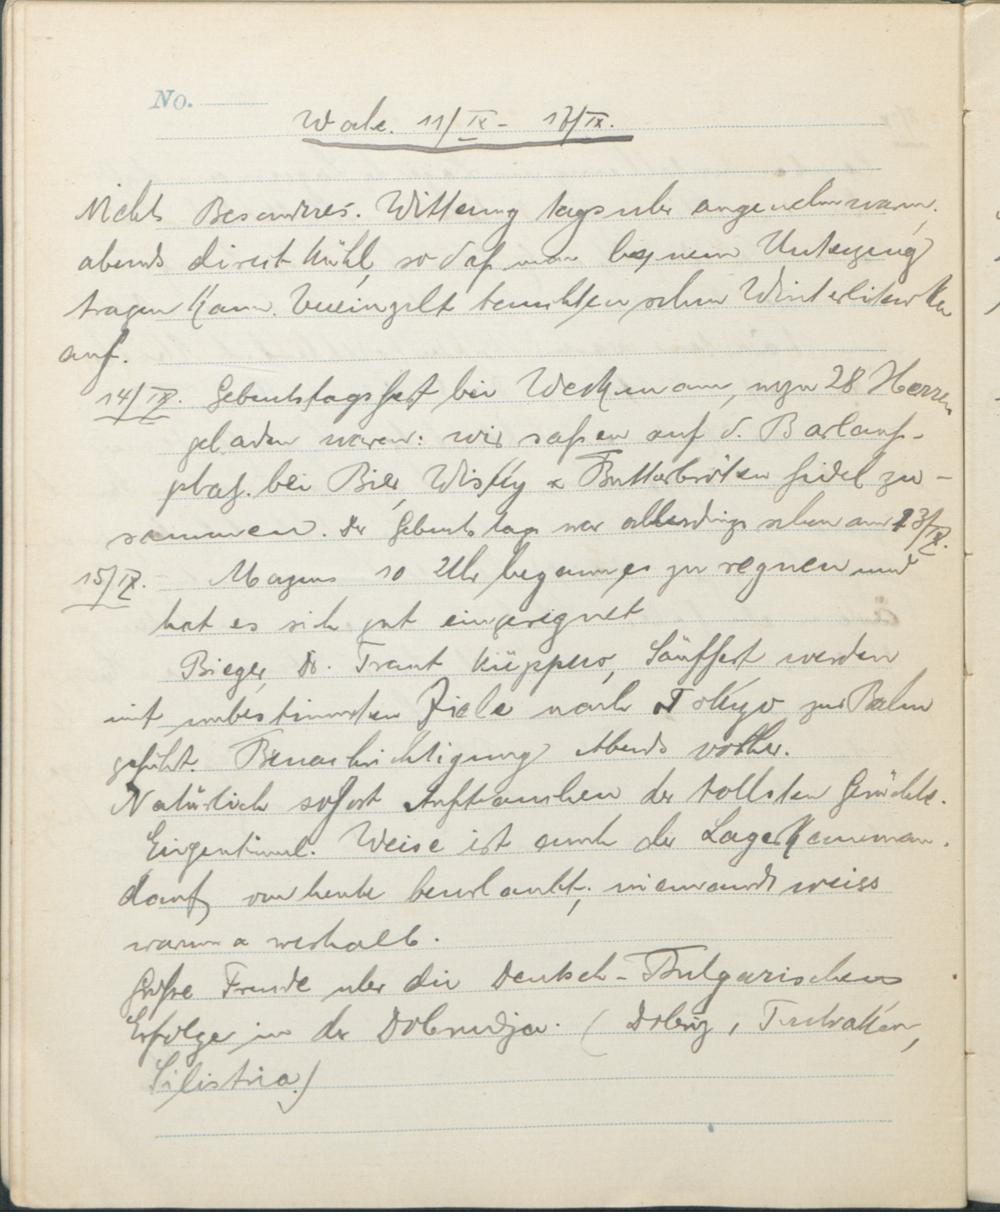 No.
Woche. 11/IX - 17/IX.
Nichts Besonderes. Witterung tagsüber angenehm warm,
abends direct kühl, so daß man bequem Unterzeug
tragen kann. Vereinzelt tauchten schon Winterlitewken
auf.
14/IX. Geburtstagsfest bei Weckmann, wozu 28 Herren
geladen waren: wir saßen auf d. Barlauf-
platz bei Bier, Wisky & Butterbröten fidel zu-
sammen. Der Geburtstag war allerdings schon am 13/IX.
15/IX. - Morgens 10 Uhr begann es zu regnen und
hat es sich gut eingeregnet
Bieger, Dr. Traut Küppers, Säuffert werden
mit unbestimmten Ziele nach Tokyo zur Bahn
geführt. Benachrichtigung Abends vorher.
Natürlich sofort Auftauchen der tollsten Gerüchte.
Eigentüml. Weise ist auch der Lagerkomman-
dant von heute beurlaubt; niemand weiss
warum & weshalb.
Große Freude über die Deutsch-Bulgarischen
Erfolge in der Dobrudja. (Dobriz, Tutrakan,
Silistria.)